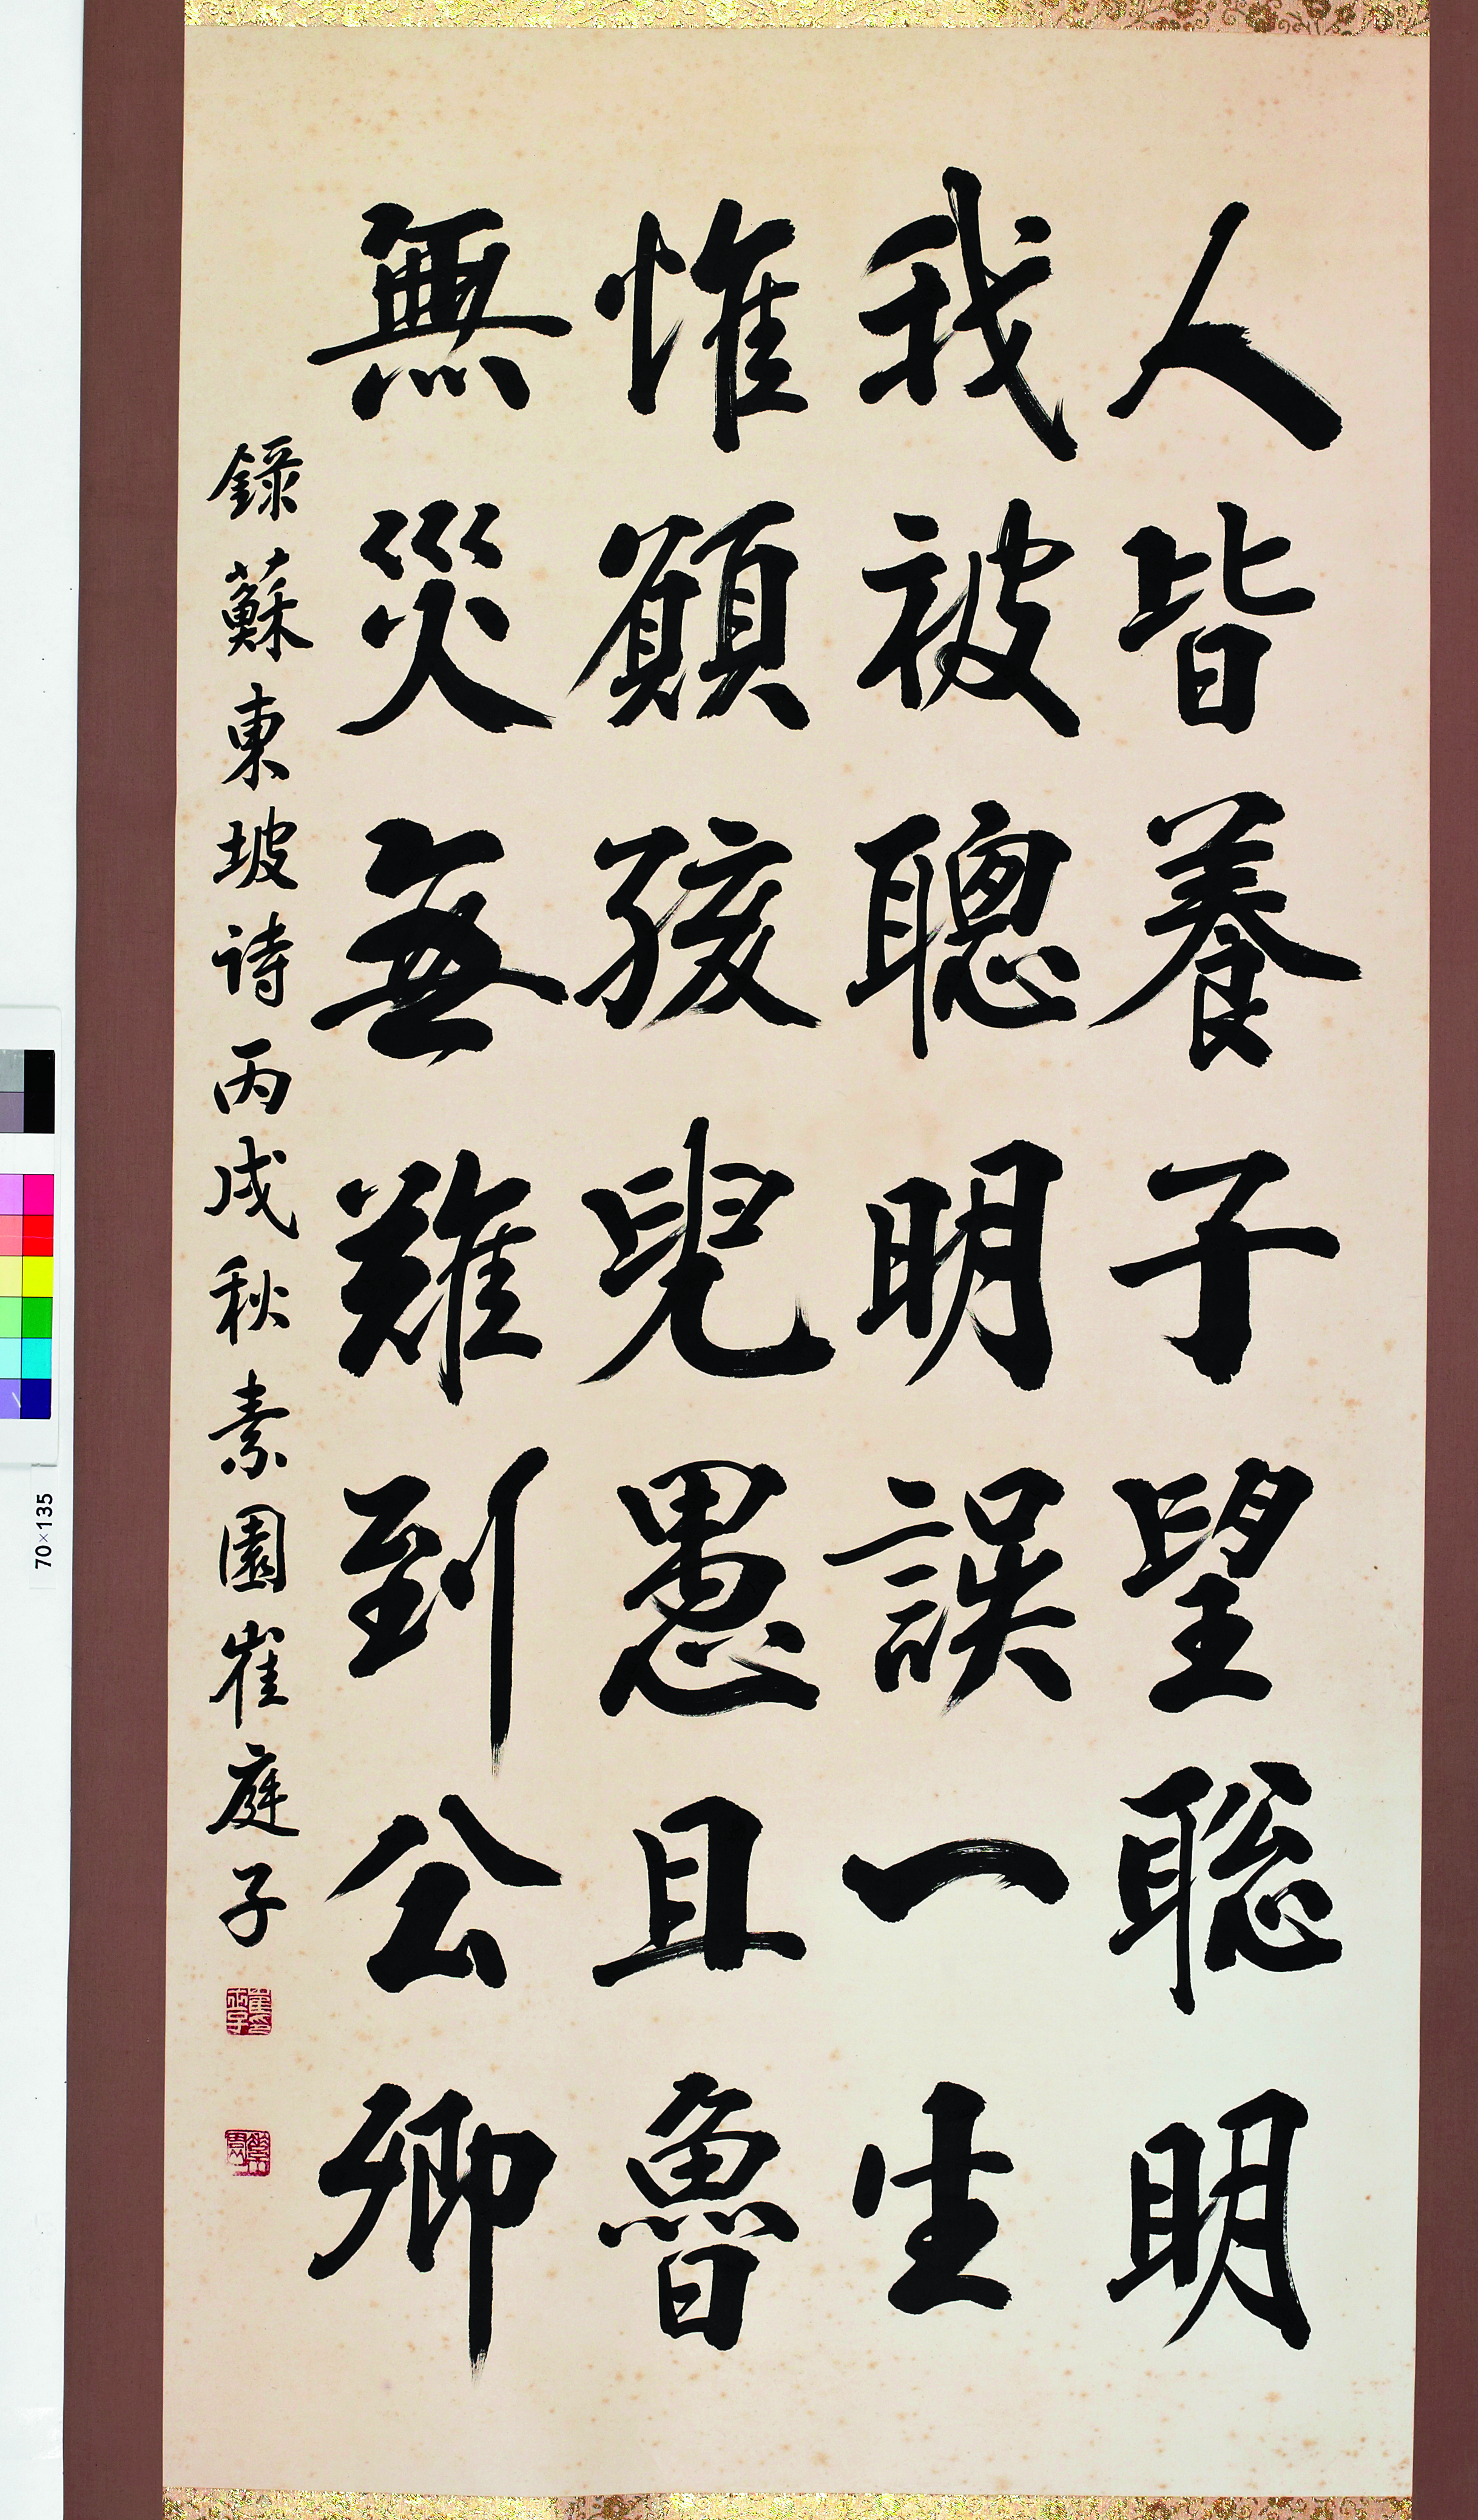 人皆養子望聡明
我被聰明誤一生
惟願孩兒愚且魯
無災無難到公卿
録蘇東坡詩丙戌秋素園崔庭子
70×135